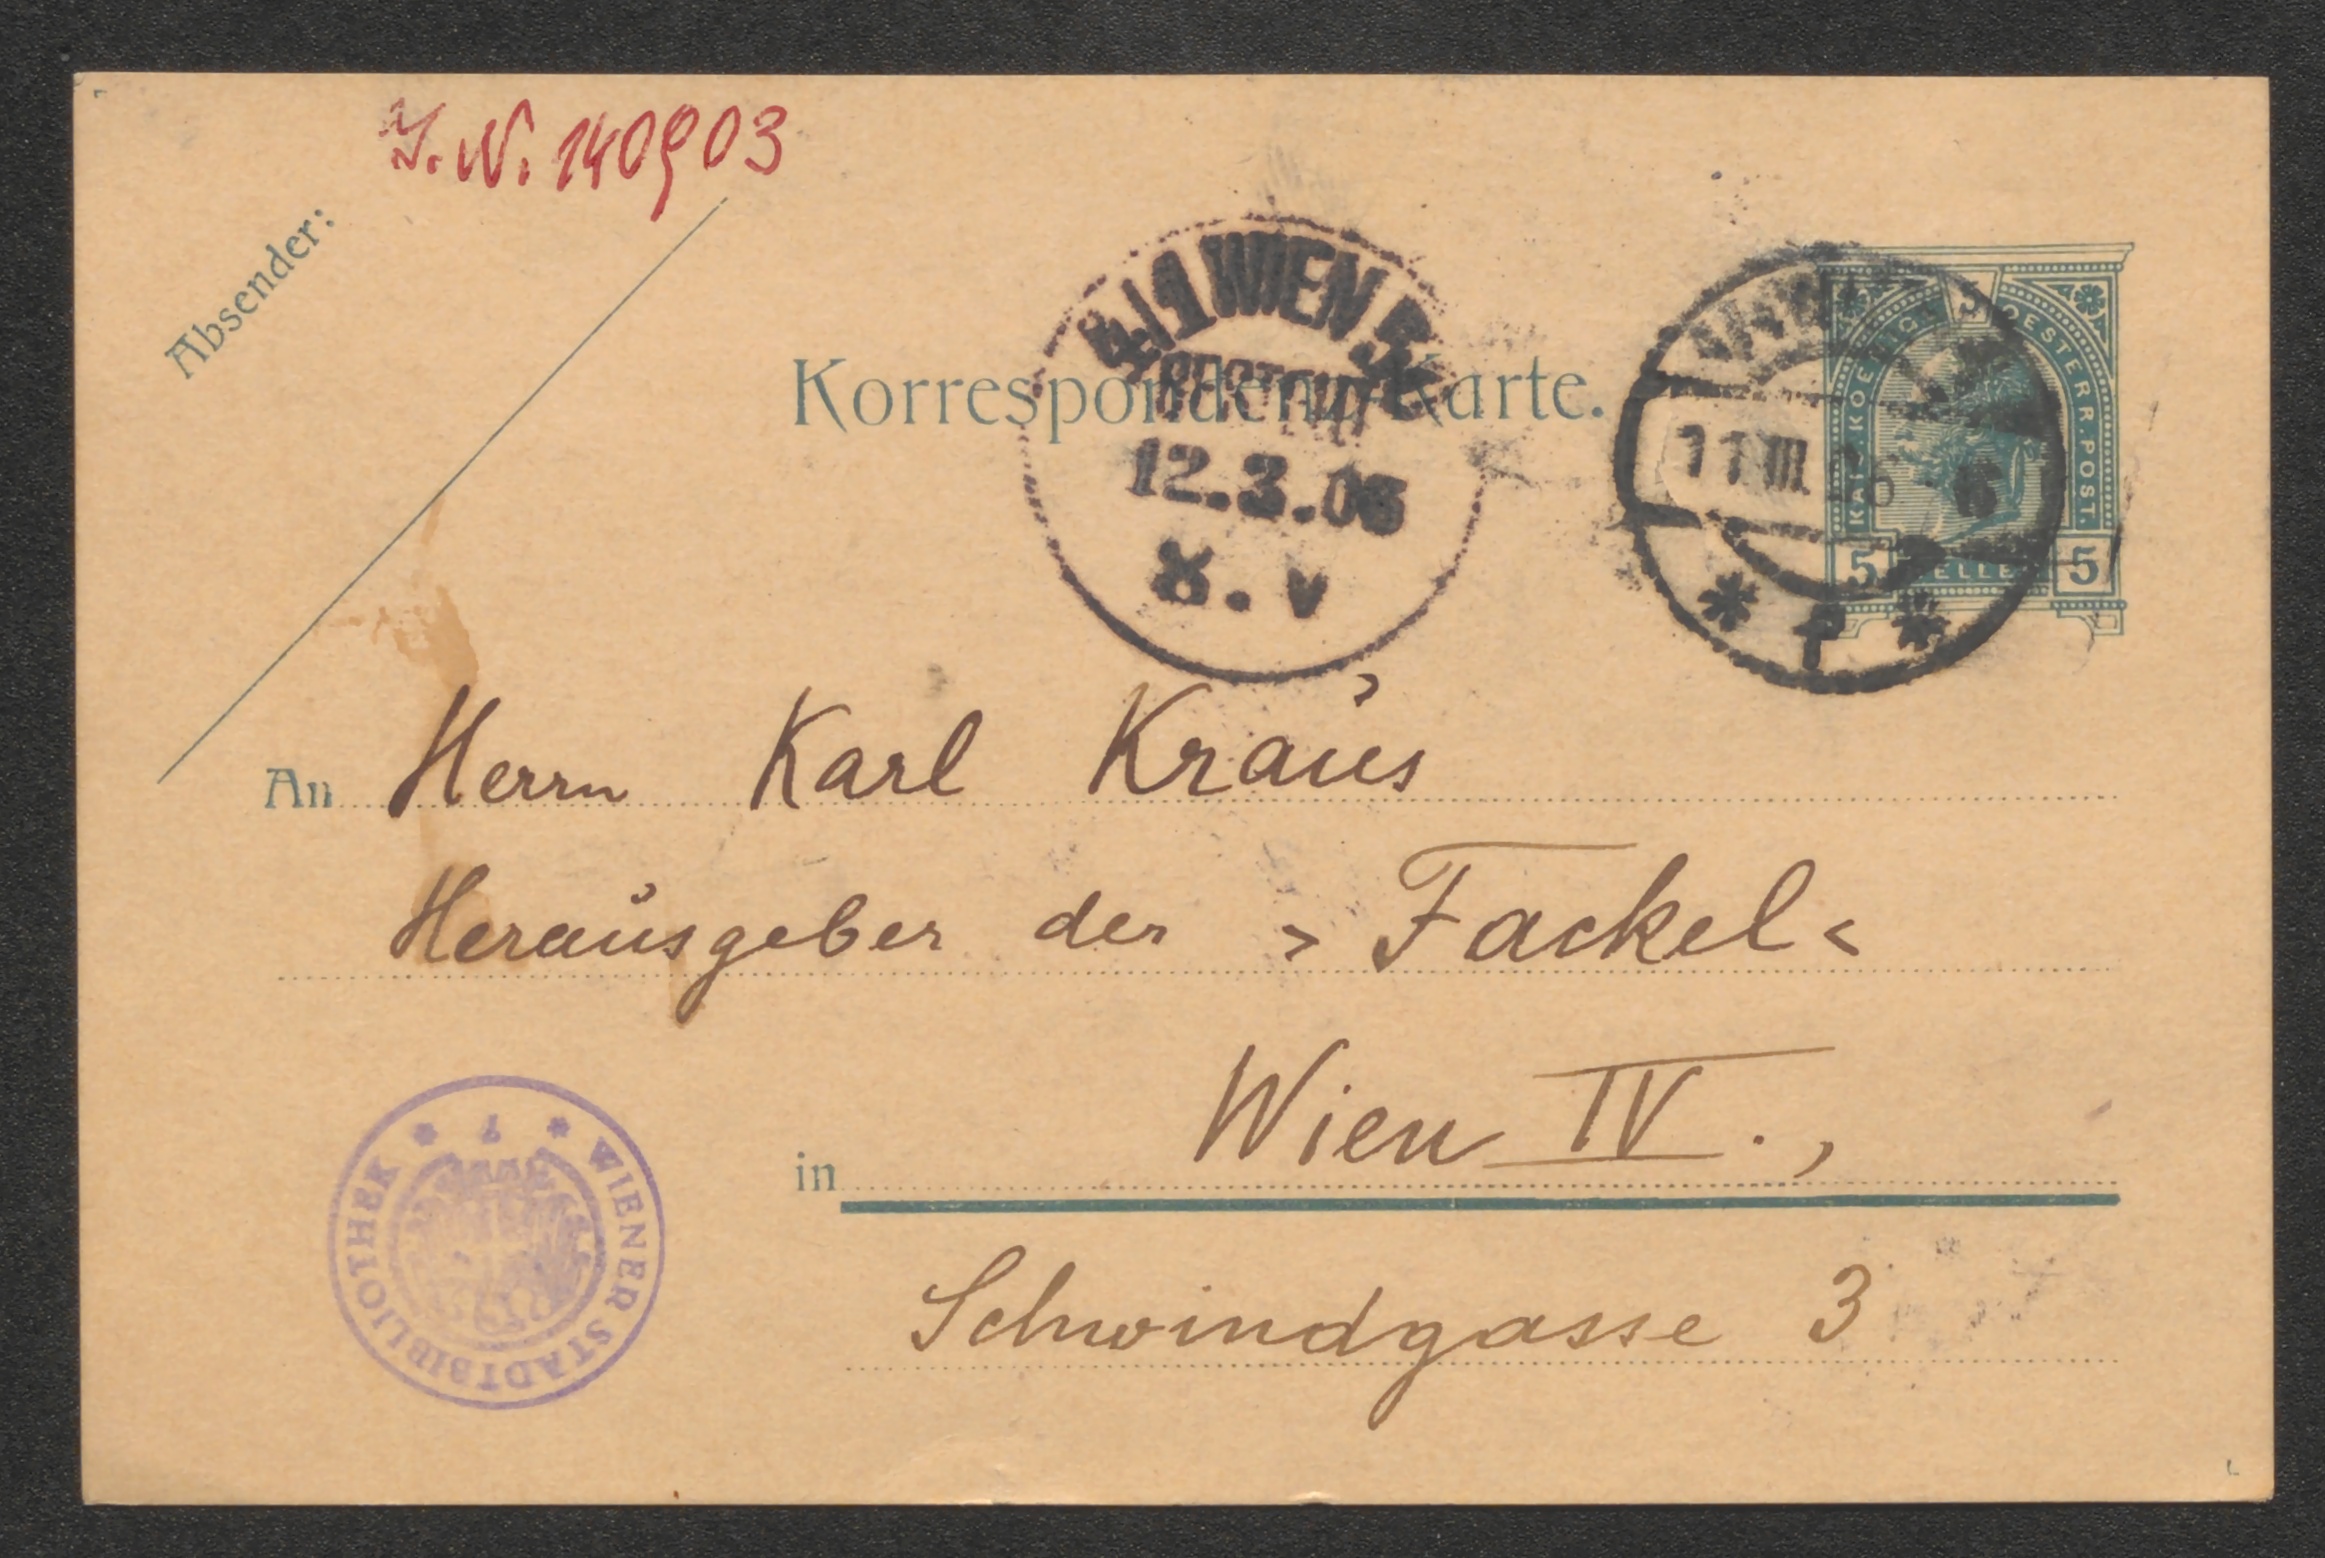 I.N. 140903
Absender:
4/1 WIEN 5
BESTELLT
12.3.06
8. V
Korrespondenz-Karte.
11 III
KAIS. KOENIG. OESTERR. POST.
5 HELLER 5
* f *
An Herrn Karl Kraus
Herausgeber der >Fackel<
in Wien IV.,
Schwindgasse 3
WIENER STADTBIBLIOTHEK